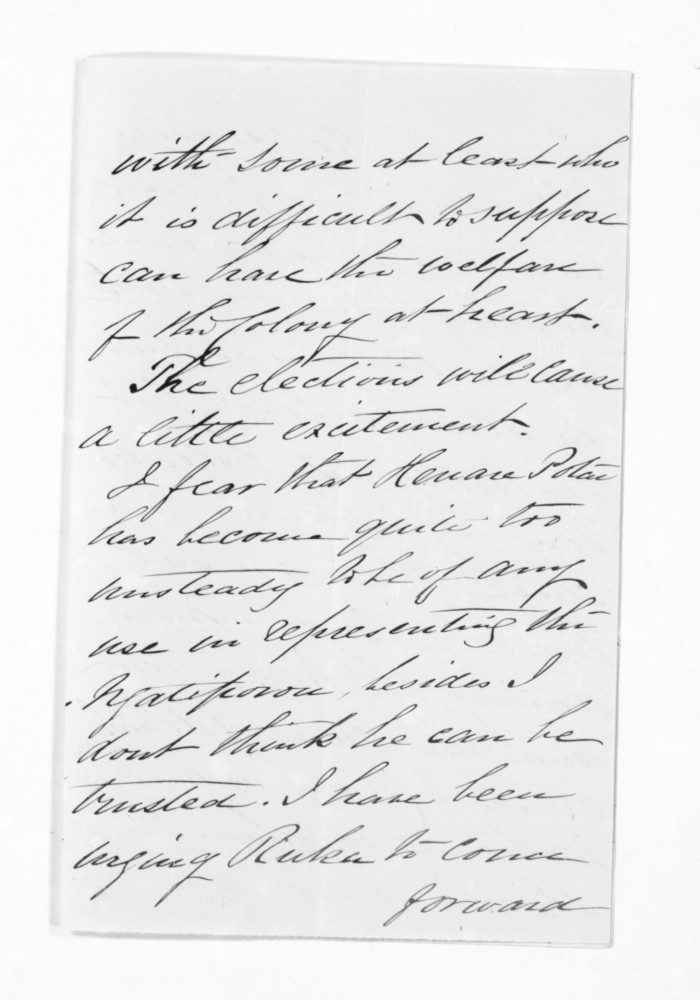 with some at least who
it is difficult to suppose
can have the welfare
of the Colony at heart.
The elections will cause
a little excitement.
I fear that Henare Potae
has become quite too
unsteady to be of any
use in representing the
Ngatiporou, besides I
dont think he can be
trusted. I have been
urging Ruka to come
forward